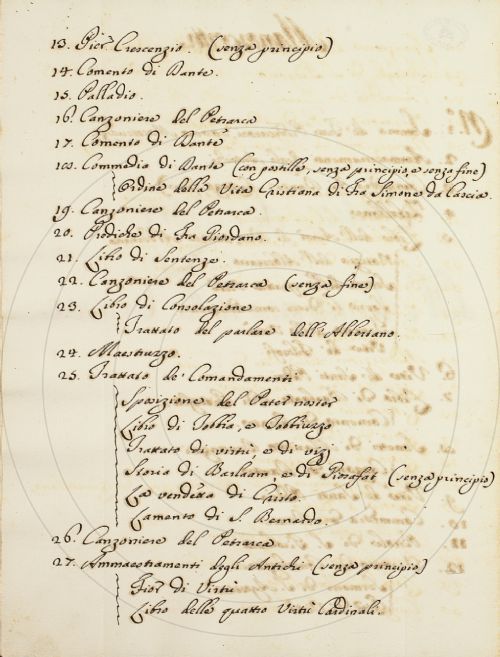 13. Pier Crescenzio. (senza principio)
14. Comento di Dante.
15. Palladio.
16. Canzoniere del Petrarca
17. Comento di Dante
18. Commedia di Dante (con postille, senza principio, e senza fine)
Ordine della Vita Cristiana di Fra Simone da Cascia.
19. Canzoniere del Petrarca.
20. Prediche di Fra Giordano.
21. Libro di Sentenze.
22. Canzoniere del Petrarca (senza fine)
23. Libro di Consolazione
Trattato del parlare dell'Albertano.
24. Maestruzzo.
25. Trattato de' Comandamenti
Sposizione del Pater noster
Libro di Tobbia, e Tobbiuzzo
Trattato di virtù, e di vizj
Storia di Barlaam, e di Giosafat (senza principio)
La vendetta di Cristo.
Lamento di S. Bernardo.
26. Canzoniere del Petrarca
27. Ammaestramenti degli Antichi (senza principio)
Fior di Virtù
Libro delle quattro Virtù Cardinali.